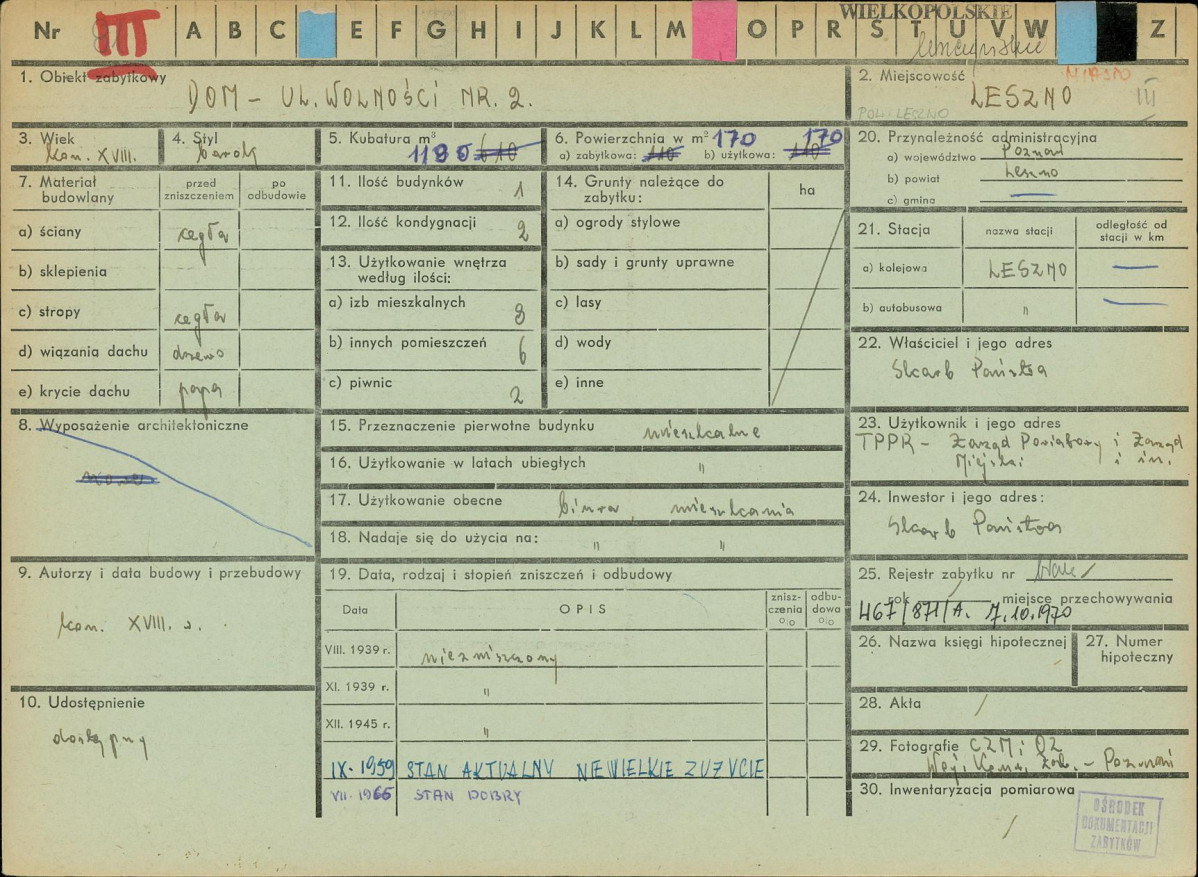 Nr III A B C E F G H I J K L M O P R S T U V W Z
WIELKOPOLSKIE
leszczyńskie
1. Obiekt zabytkowy
DOM - UL. WOLNOŚCI NR. 2.
2. Miejscowość
MIASTO
LESZNO
III
POW. LESZNO
3. Wiek
kon. XVIII.
4. Styl
barok
5. Kubatura m³
1195 610
6. Powierzchnia w m² 170 170
a) zabytkowa: 110 b) użytkowa: 110
20. Przynależność administracyjna
a) województwo Poznań
b) powiat Leszno
c) gmina —
7. Materiał budowlany
przed zniszczeniem
po odbudowie
a) ściany cegła
b) sklepienia
c) stropy cegła
d) wiązania dachu drzewo
e) krycie dachu papa
11. Ilość budynków 1
12. Ilość kondygnacji 2
13. Użytkowanie wnętrza
według ilości:
a) izb mieszkalnych 8
b) innych pomieszczeń 6
c) piwnic 2
14. Grunty należące do
zabytku:
ha
a) ogrody stylowe
b) sady i grunty uprawne
c) lasy
d) wody
e) inne
21. Stacja
nazwa stacji
odległość od
stacji w km
a) kolejowa LESZNO —
b) autobusowa " —
22. Właściciel i jego adres
Skarb Państwa
8. Wyposażenie architektoniczne
15. Przeznaczenie pierwotne budynku mieszkalne
16. Użytkowanie w latach ubiegłych "
17. Użytkowanie obecne biura, mieszkania
18. Nadaje się do użycia na: " "
23. Użytkownik i jego adres
TPPR - Zarząd Powiatowy i Zarząd
Miejski i in.
24. Inwestor i jego adres:
Skarb Państwa
9. Autorzy i data budowy i przebudowy
kon. XVIII w.
19. Data, rodzaj i stopień zniszczeń i odbudowy
Data
OPIS
znisz-
czenia
%
odbu-
dowa
%
VIII. 1939 r. niezniszczony
XI. 1939 r. "
XII. 1945 r. "
IX-1959 STAN AKTUALNY NIEWIELKIE ZUŻYCIE
VII-1965 STAN DOBRY
25. Rejestr zabytku nr brak /
rok miejsce przechowywania
467/871/A. 7.10.1970
26. Nazwa księgi hipotecznej
27. Numer
hipoteczny
10. Udostępnienie
dostępny
28. Akta /
29. Fotografie CZM i OZ
Woj. Kons. Zab. - Poznań
30. Inwentaryzacja pomiarowa
/
OŚRODEK
DOKUMENTACJI
ZABYTKÓW